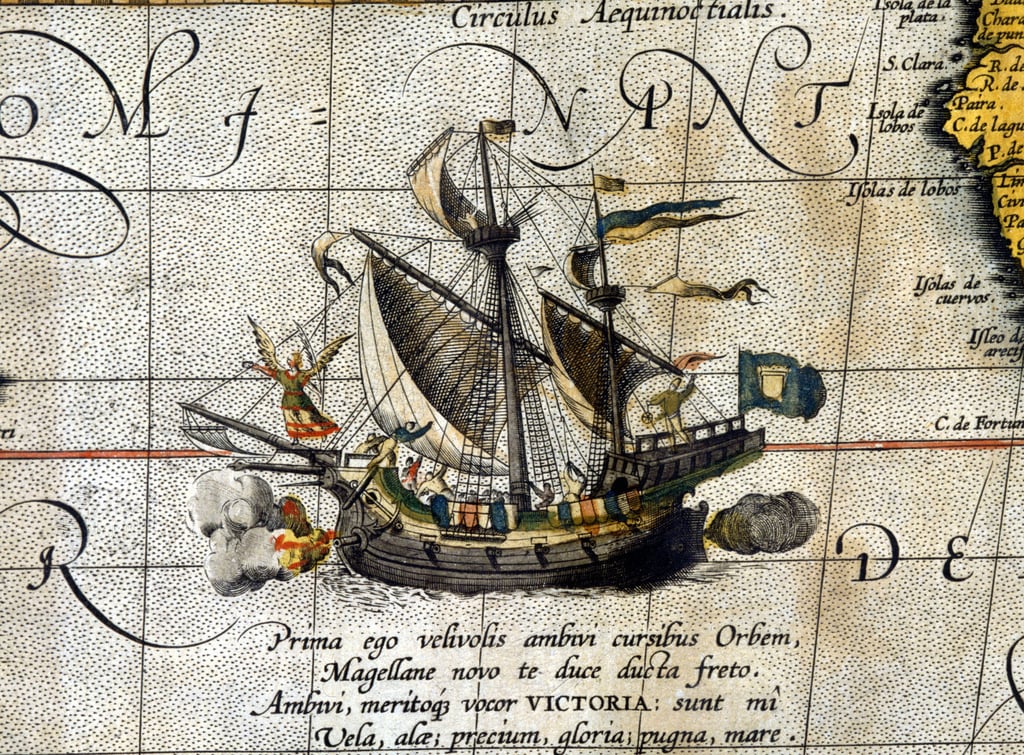 Circulus Aequinoctialis.
Isola de la
plata.
Chara
de pun
S. Clara.
R. de
R. de
OMI =
NANT
Paira.
Isola de
lobos
C. de lagu
P. de
Isolas de lobos
Lim
Civi
Pa
Isolas de
cuervos.
Isleo de
arecif
C. de Fortun
R
DE
Prima ego velivolis ambivi cursibus Orbem,
Magellane novo te duce ducta freto.
Ambivi, meritoq́ʒ vocor VICTORIA: sunt mî
Vela, alæ; precium, gloria; pugna, mare.